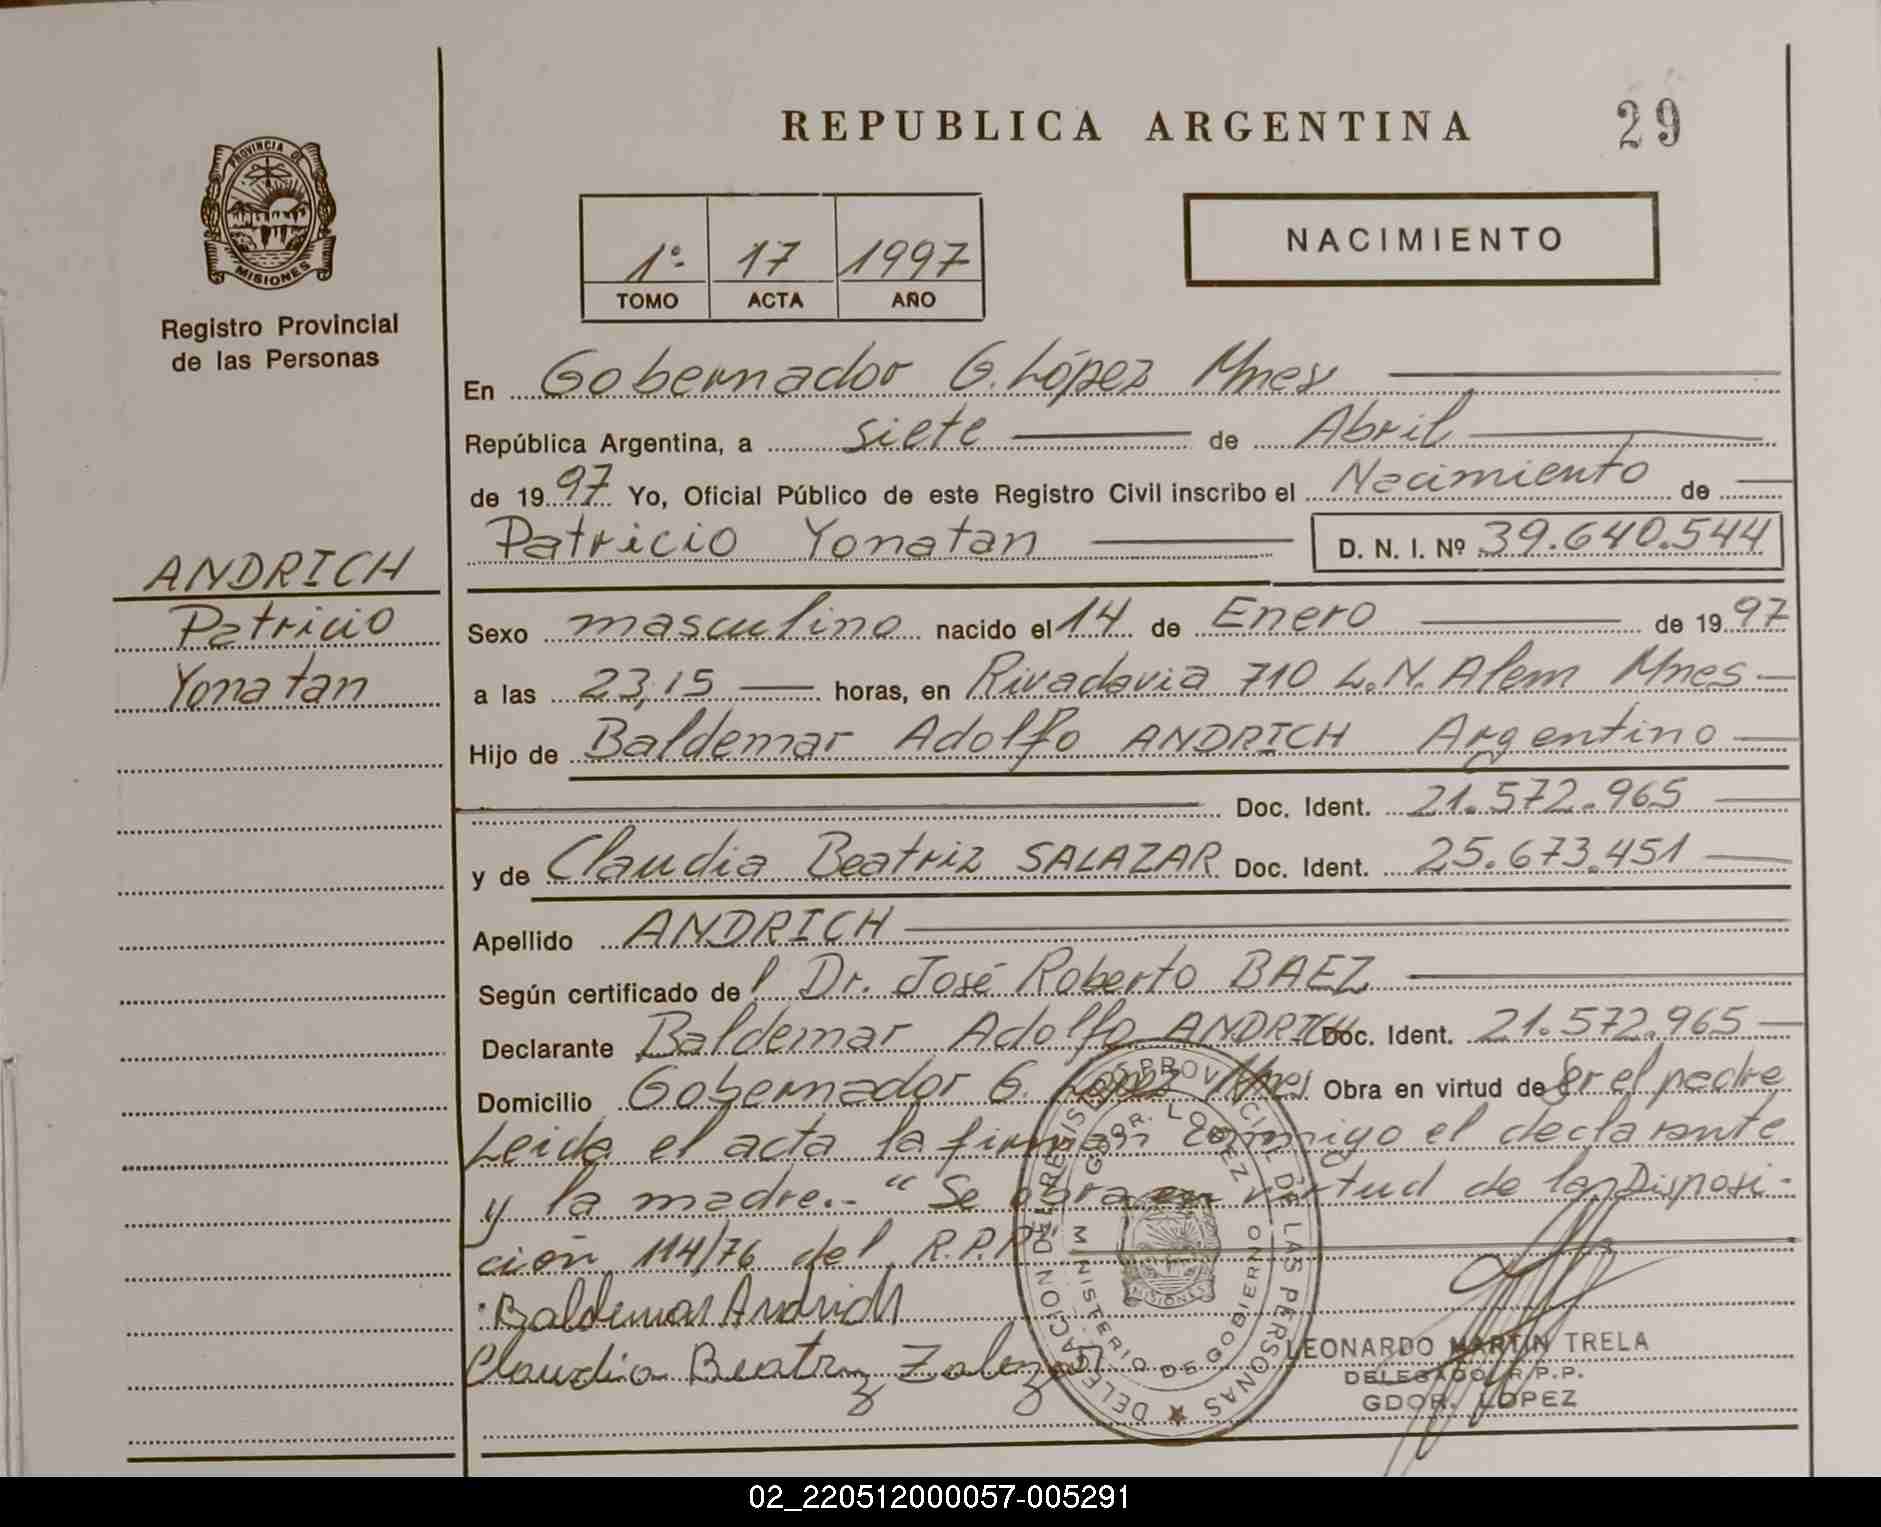 REPUBLICA ARGENTINA
29
PROVINCIA DE
MISIONES
Registro Provincial
de las Personas
1º-
17
1997
TOMO
ACTA
AÑO
NACIMIENTO
En Gobernador G. López Mnes
República Argentina, a siete de Abril
de 1997 Yo, Oficial Público de este Registro Civil inscribo el Nacimiento de
Patricio Yonatan D. N. I. Nº 39.640.544
ANDRICH
Patricio
Yonatan
Sexo masculino nacido el 14 de Enero de 1997
a las 23,15 horas, en Rivadavia 710 L.N. Alem Mnes
Hijo de Baldemar Adolfo ANDRICH Argentino
Doc. Ident. 21.572.965
y de Claudia Beatriz SALAZAR Doc. Ident. 25.673.451
Apellido ANDRICH
Según certificado del Dr. José Roberto BAEZ
Declarante Baldemar Adolfo ANDRICH Doc. Ident. 21.572.965
Domicilio Gobernador G. López Mnes Obra en virtud de Ser el padre
Leida el acta la firman conmigo el declarante
y la madre.- "Se obra en virtud de la Disposi-
ción 114/76 del R.P.P."
Baldemar Andrich
Claudia Beatriz Zalazar
DELEGACION DEL REGISTRO PROVINCIAL DE LAS PERSONAS
GDOR. LOPEZ
MINISTERIO DE GOBIERNO
MISIONES
LEONARDO MARTIN TRELA
DELEGADO R.P.P.
GDOR. LOPEZ
02_220512000057-005291